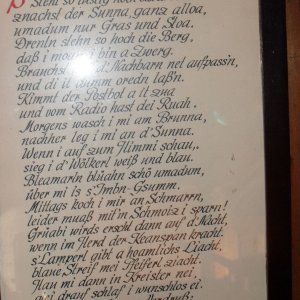 Steht so lustig
znachst der Sunna, ganz alloa,
umadum nur Gras und Stoa.
Drentn stehn so hoch die Berg,
daß i moan, i bin a Zwerg.
Brauchst auf d'Nachbarn net aufpass'n,
und di it dumm oredn laß'n.
Kimmt der Postbot a it zua
und vom Radio hast dei Ruah.
Morgens wasch i mi am Brunna,
nachher leg i mi an d'Sunna.
Wenn i auf zum Himmi schau,
sieg i d'Wölkerl weiß und blau.
Bleamarln blüahn schö umadum,
über mi is s'Imbn-Gsumm.
Mittags koch i mir an Schmarrn,
leider muaß mit'n Schmoiz i sparn!
Grüabi wirds erscht dann auf d'Nacht,
wenn im Herd der Keanspan kracht.
s'Lamperl gibt a hoamlichs Liacht,
blaue Streif mei Pfeiferl ziacht.
Hau mi dann in Kreister nei,
drauf schlaf i wunschlos ei.